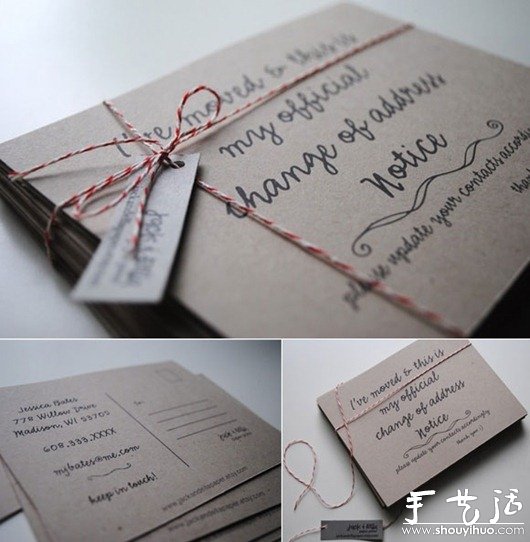 I've moved & this is
my official
change of address
Notice
please update your contacts accordingly
thank
jack & ella
Jessica Bates
778 Willow Drive
Madison, WI 53705
608.333.XXXX
mybates@me.com
keep in touch!
to
jack & ella
www.jackandellapaper.etsy.com
I've moved & this is
my official
change of address
Notice
please update your contacts accordingly
thank you :)
jack & ella
手艺活
www.shouyihuo.com